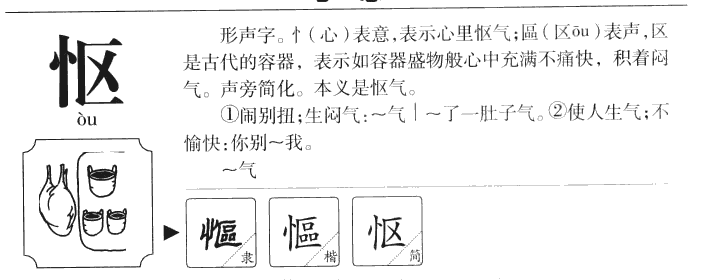 怄
òu
形声字。忄(心)表意,表示心里怄气;區(区ōu)表声,区
是古代的容器，表示如容器盛物般心中充满不痛快，积着闷
气。声旁简化。本义是怄气。
①闹别扭;生闷气:～气｜～了一肚子气。②使人生气;不
愉快:你别～我。
～气
慪 隶
慪 楷
怄 简